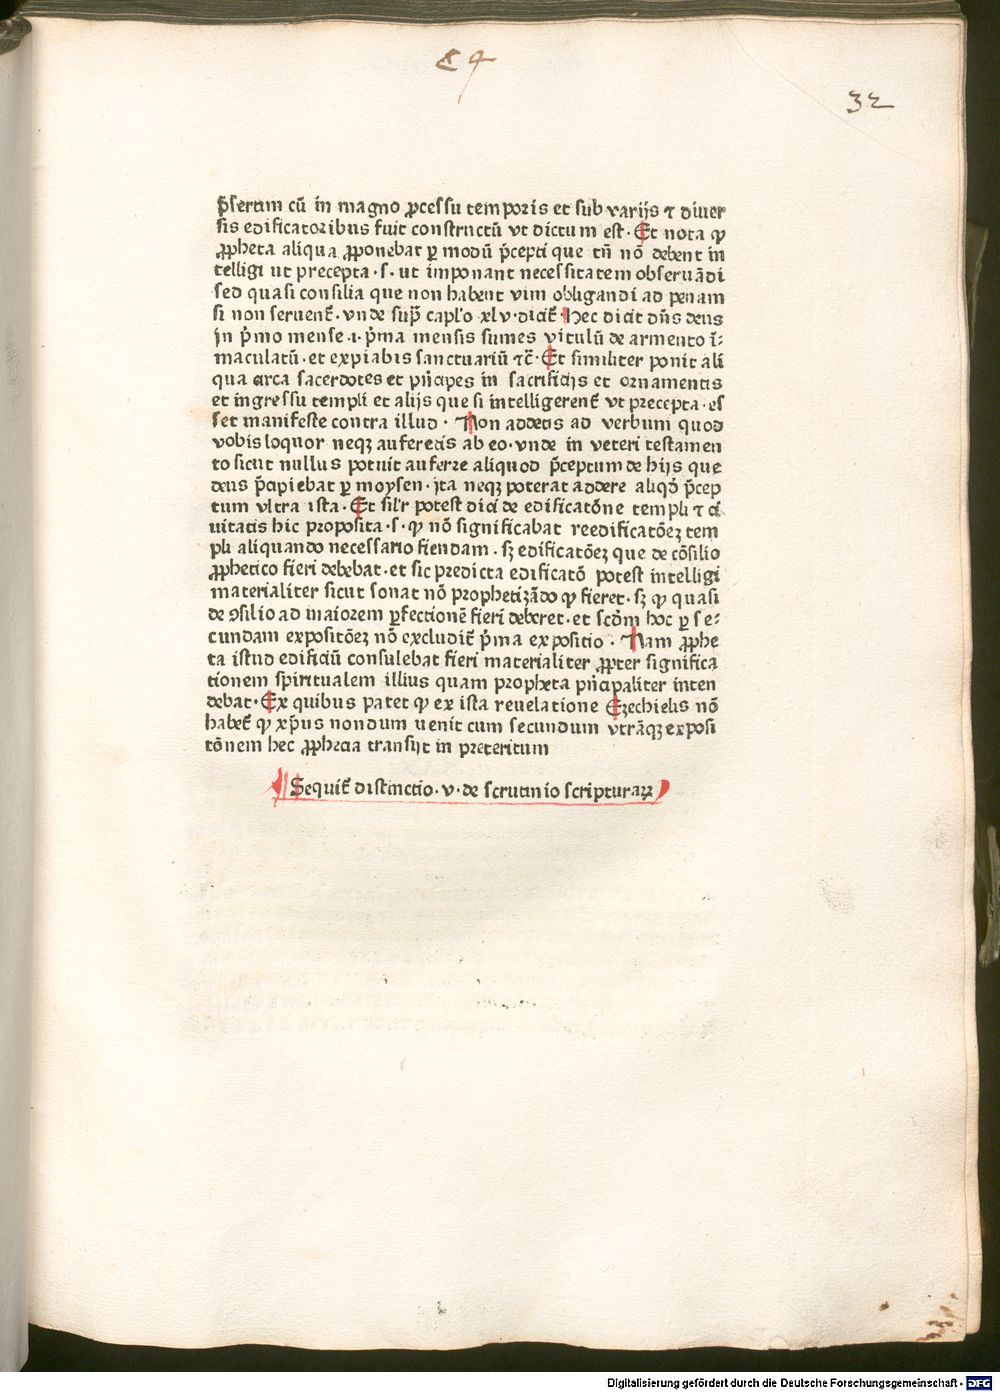 89
32
p̄sertim cū in magno ꝓcessu temporis et sub varijs ⁊ diuer
sis edificatoribus fuit constructū vt dictum est · Et nota ꝙ
ꝓpheta aliqua ꝓponebat ꝑ modū p̄cepti que tn̄ nō debent in
telligi ut precepta · s · ut imponant necessitatem obseruādi
sed quasi consilia que non habent vim obligandi ad penam
si non seruent᷑ · vnde sup̄ capl'o xlv · dicit᷑ · Hec dicit dn̄s deus
in p̄mo mense · 1 · p̄ma mensis sumes vitulū de armento ī⸗
maculatū · et expiabis sanctuariū ⁊c̄ · Et similiter ponit ali
qua circa sacerdotes et pn̄cipes in sacrificijs et ornamentis
et ingressu templi et alijs que si intelligerent᷑ vt precepta · es
set manifeste contra illud · Non addetis ad verbum quod
vobis loquor neqꝫ auferetis ab eo · vnde in veteri testamen
to sicut nullus potuit auferre aliquod p̄ceptum de hijs que
deus p̄cipiebat ꝑ moysen · ita neqꝫ poterat addere aliqd̄ p̄cep
tum vltra ista · Et sil'r potest dici de edificatōne templi ⁊ ci
uitatis hic proposita · s · ꝙ nō significabat reedificatōeꝫ tem
pli aliquando necessario fiendam · sꝫ edificatōeꝫ que de cōsilio
ꝓphetico fieri debebat · et sic predicta edificatō potest intelligi
materialiter sicut sonat nō prophetizādo ꝙ fieret · sꝫ ꝙ quasi
de ꝯsilio ad maiorem ꝑfectionē fieri deberet · et scd̄m hoc ꝑ se⸗
cundam expositōeꝫ nō excludit᷑ p̄ma expositio · Nam ꝓphe
ta istud edificiū consulebat fieri materialiter ꝓpter significa
tionem spiritualem illius quam propheta pn̄cipaliter inten
debat · Ex quibus patet ꝙ ex ista reuelatione Ezechielis nō
habet᷑ ꝙ xp̄us nondum uenit cum secundum vtrāqꝫ exposi
tōnem hec ꝓphecia transijt in preteritum
Sequit᷑ distinctio · v · de scrutinio scripturaꝝ
Digitalisierung gefördert durch die Deutsche Forschungsgemeinschaft - DFG